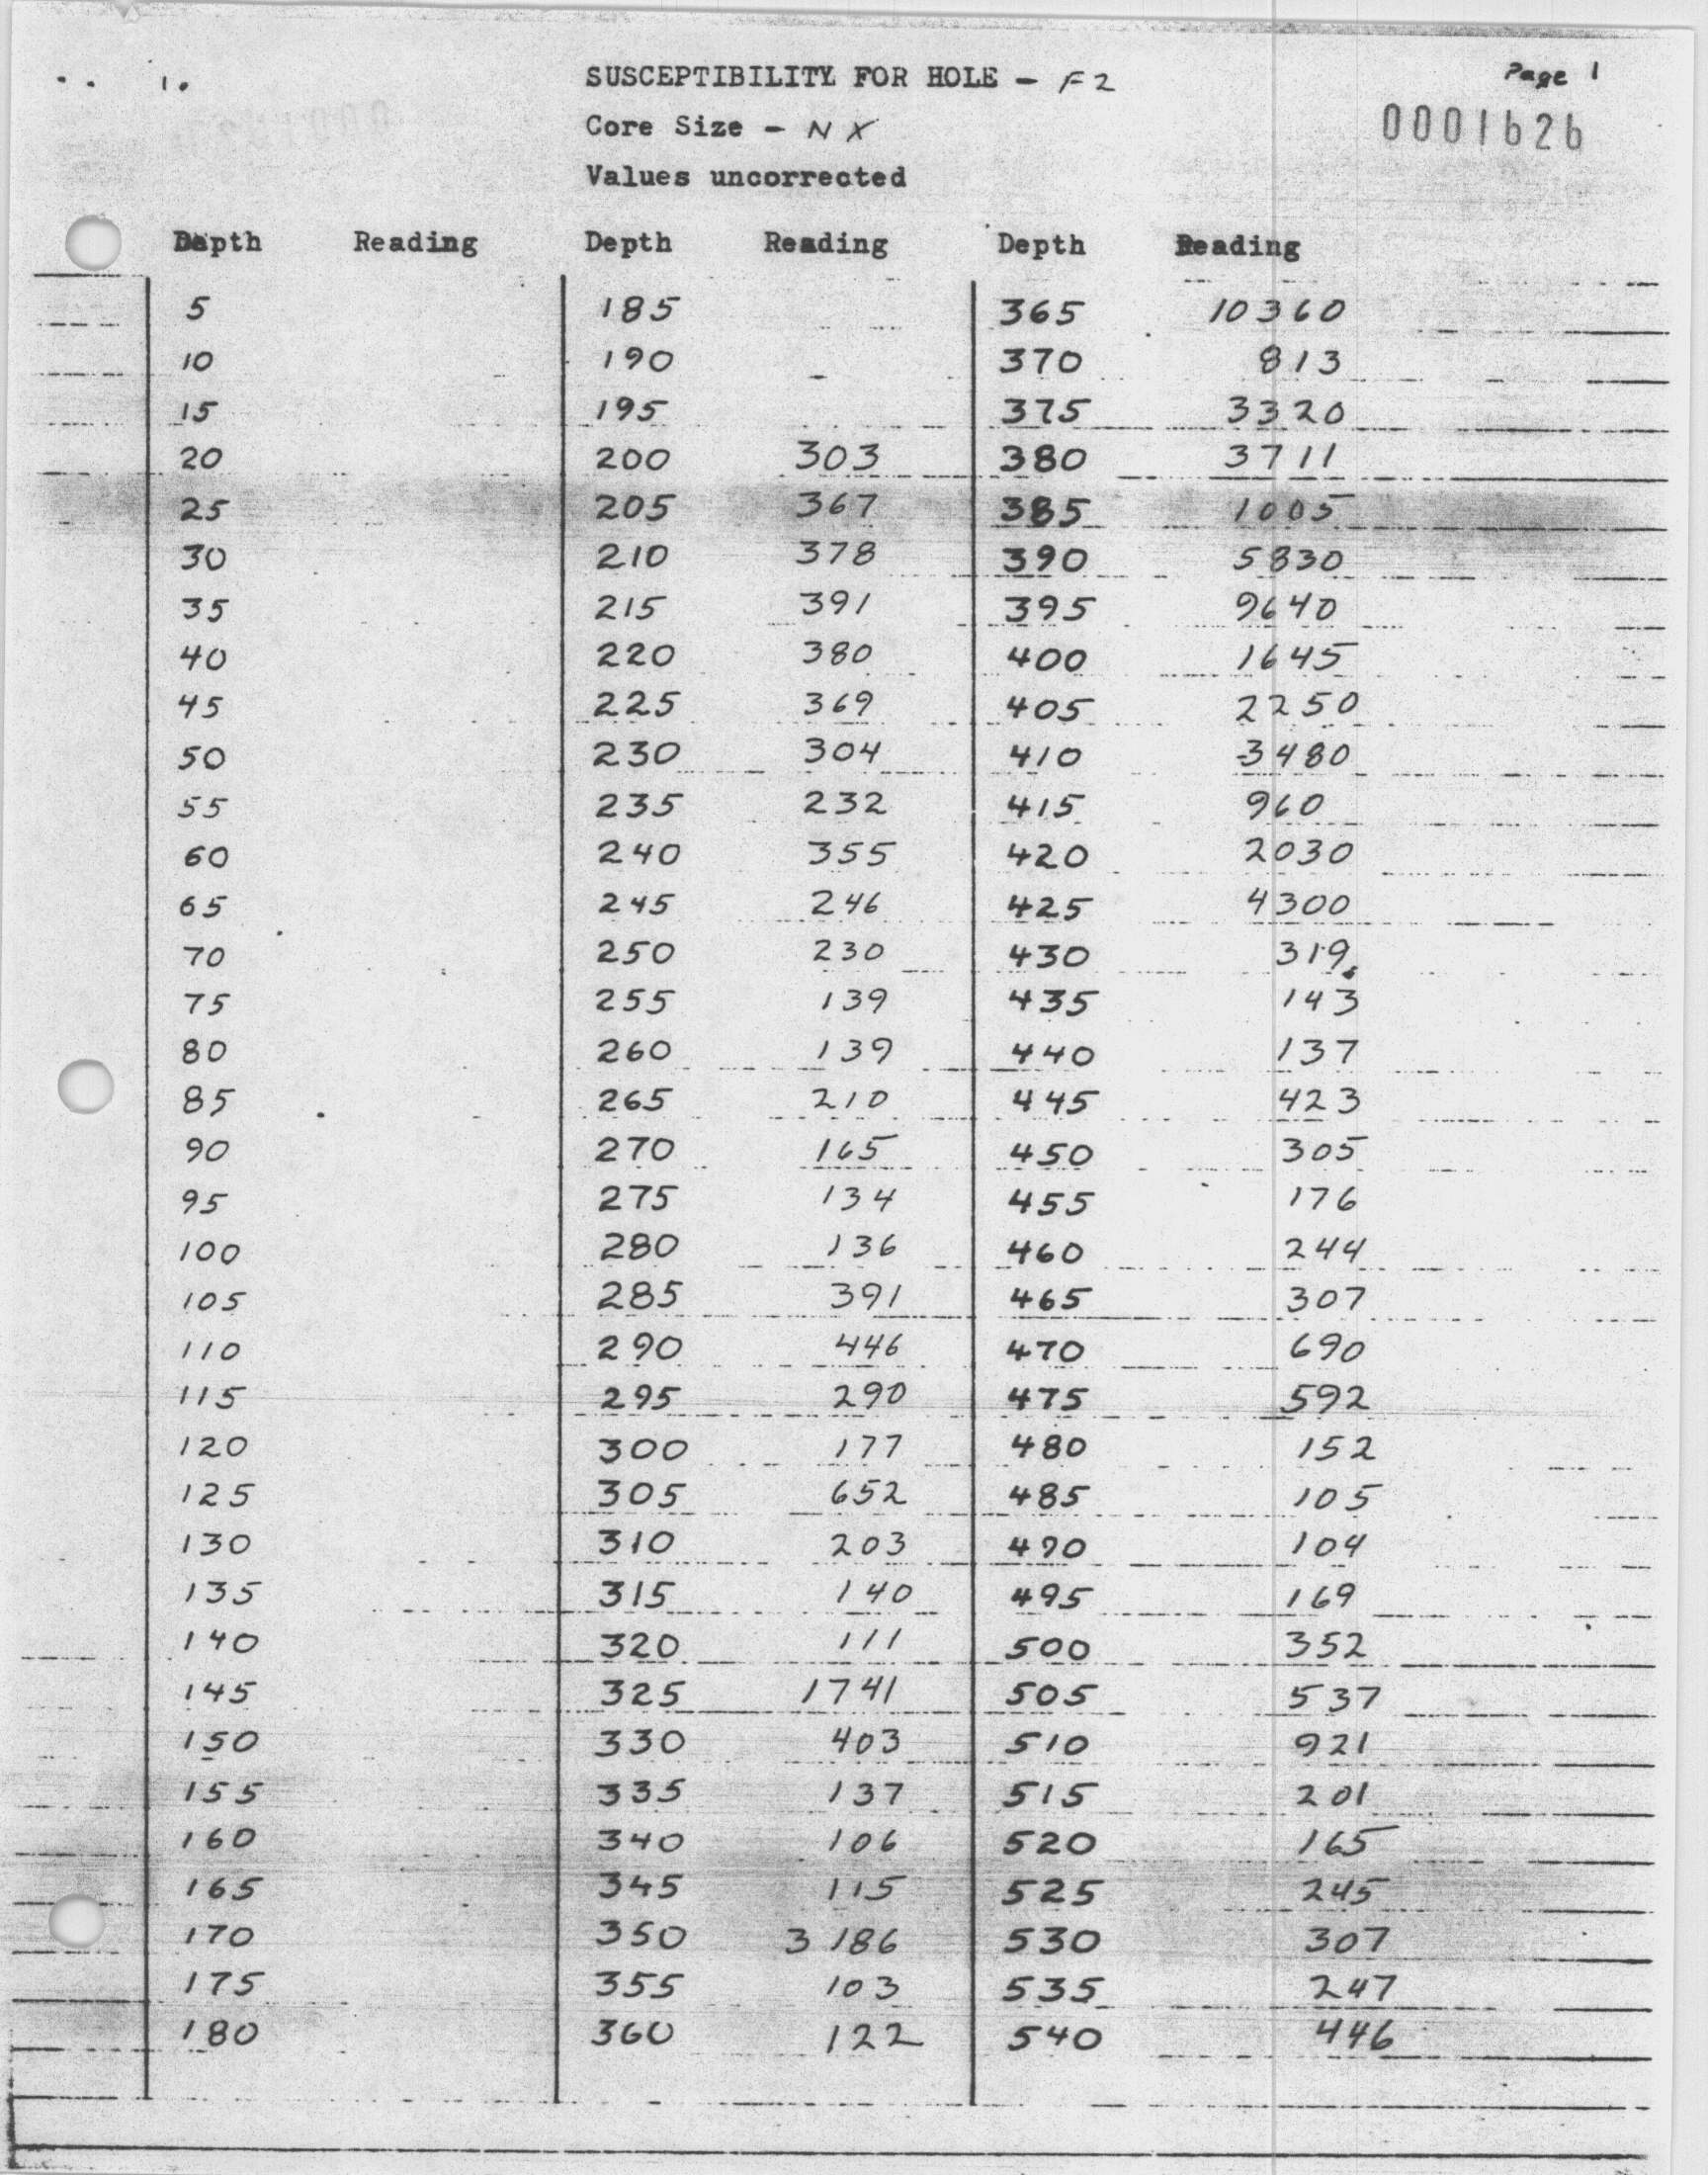 SUSCEPTIBILITY FOR HOLE - F2
Page 1
Core Size - NX
0001626
Values uncorrected
Depth Reading Depth Reading Depth Reading
5 185 365 10360
10 190 370 813
15 195 375 3320
20 200 303 380 3711
25 205 367 385 1005
30 210 378 390 5830
35 215 391 395 9640
40 220 380 400 1645
45 225 369 405 2250
50 230 304 410 3480
55 235 232 415 960
60 240 355 420 2030
65 245 246 425 4300
70 250 230 430 319
75 255 139 435 143
80 260 139 440 137
85 265 210 445 423
90 270 165 450 305
95 275 134 455 176
100 280 136 460 244
105 285 391 465 307
110 290 446 470 690
115 295 290 475 592
120 300 177 480 152
125 305 652 485 105
130 310 203 490 104
135 315 140 495 169
140 320 111 500 352
145 325 1741 505 537
150 330 403 510 921
155 335 137 515 201
160 340 106 520 165
165 345 115 525 245
170 350 3186 530 307
175 355 103 535 247
180 360 122 540 446